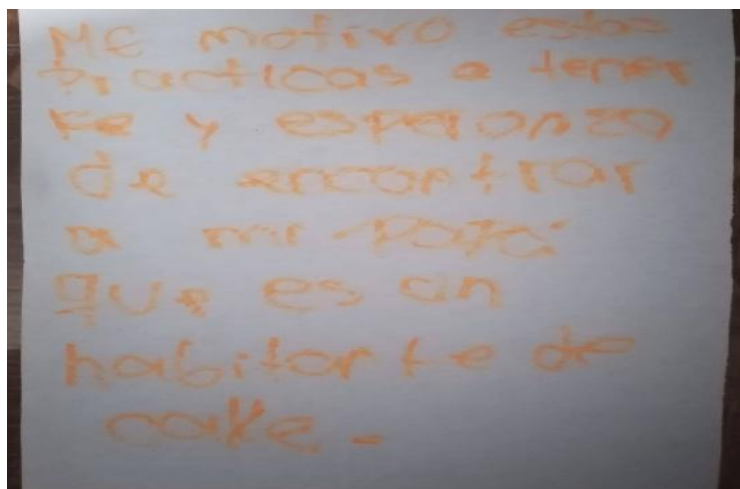 Me motivo estas
practicas a tener
Fe y esperanza
de encontrar
a mi papá
que es un
habitante de
calle -